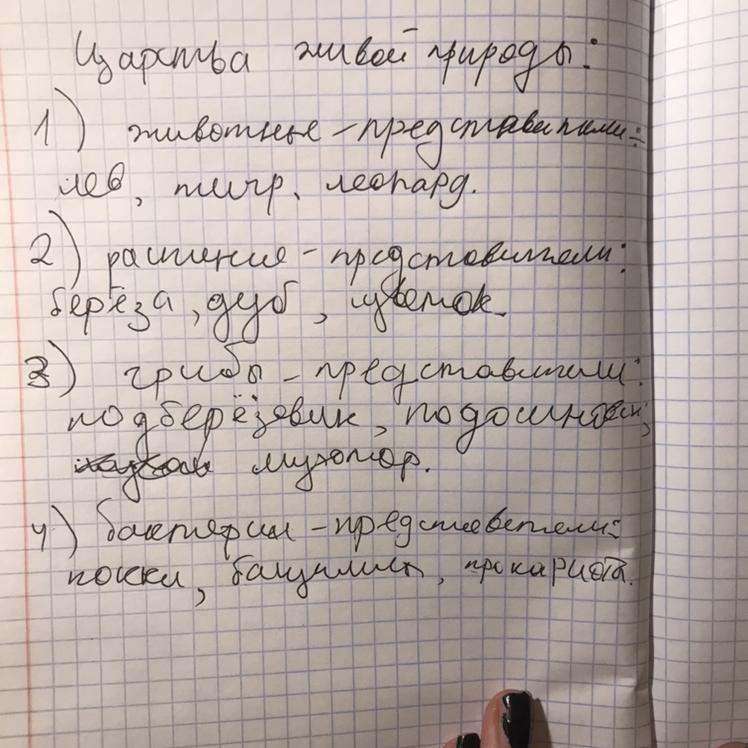 Царства живой природы:
1) животные - представители:
лев, тигр, леопард.
2) растение - представители:
берёза, дуб, цветок.
3) грибы - представители:
подберёзовик, подосиновик,
мухомор.
4) бактерии - представетели:
кокки, бациллы, прокариота.